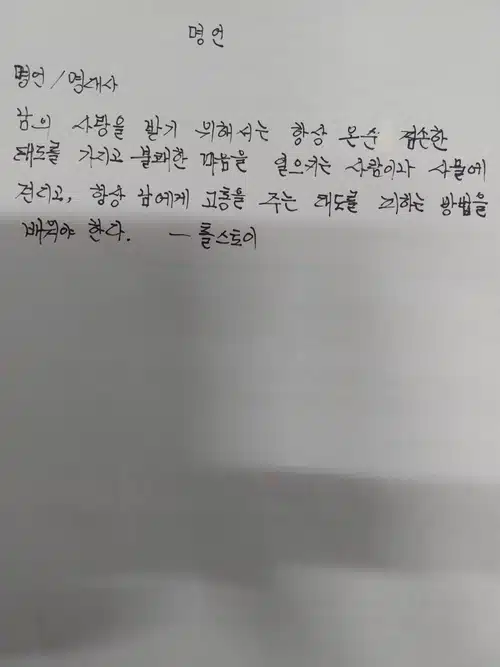 명언
명언/명대사
남의 사랑을 받기 위해서는 항상 온순 겸손한
태도를 가지고 불쾌한 마음을 일으키는 사람이나 사물에
견디고, 항상 남에게 고통을 주는 태도를 피하는 방법을
배워야 한다. — 톨스토이